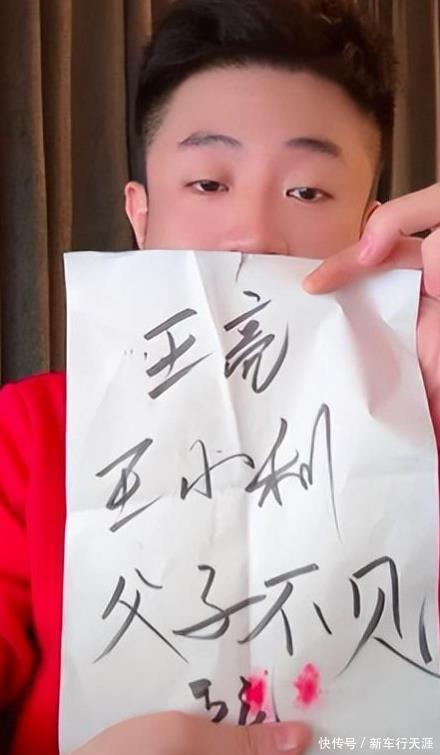 王亮
王小利
父子不见
快传号／新车行天涯